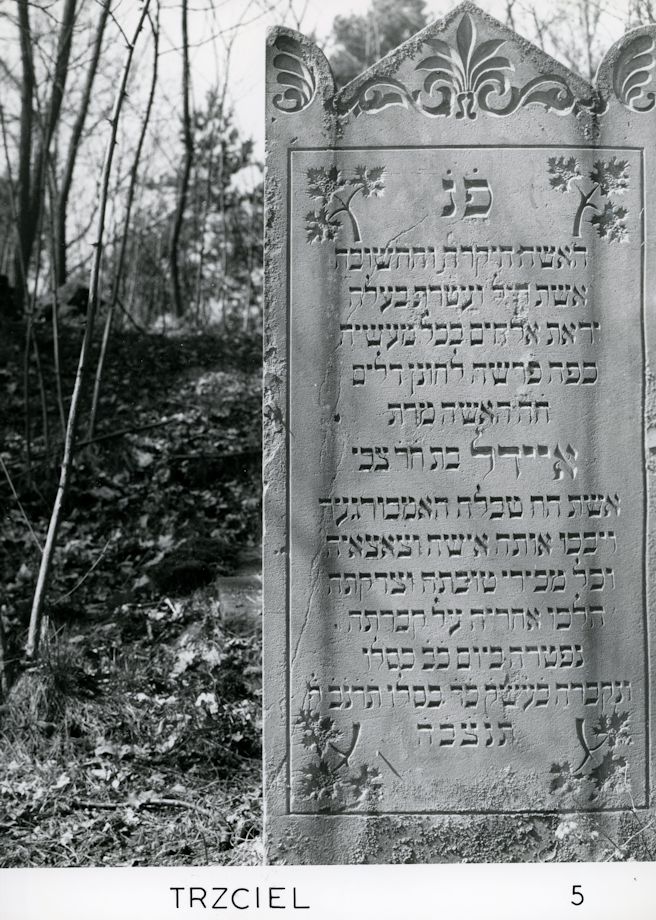 פנ
האשה היקרה והחשובה
אשת חיל ועטרת בעלה
יראת אלהים בכל מעשיה
כפה פרשה לחונן דלים
הה האשה מרת
איידל בת הר צבי
אשת הח טבלה האמבורגער
ויבכו אותה אישה וצאצאיה
וכל מכירי טובתה וצדקתה
הלכו אחריה על קברתה
נפטרה ביום כב כסלו
ונקברה בעשק כד כסלו
תנצבה
TRZCIEL 5